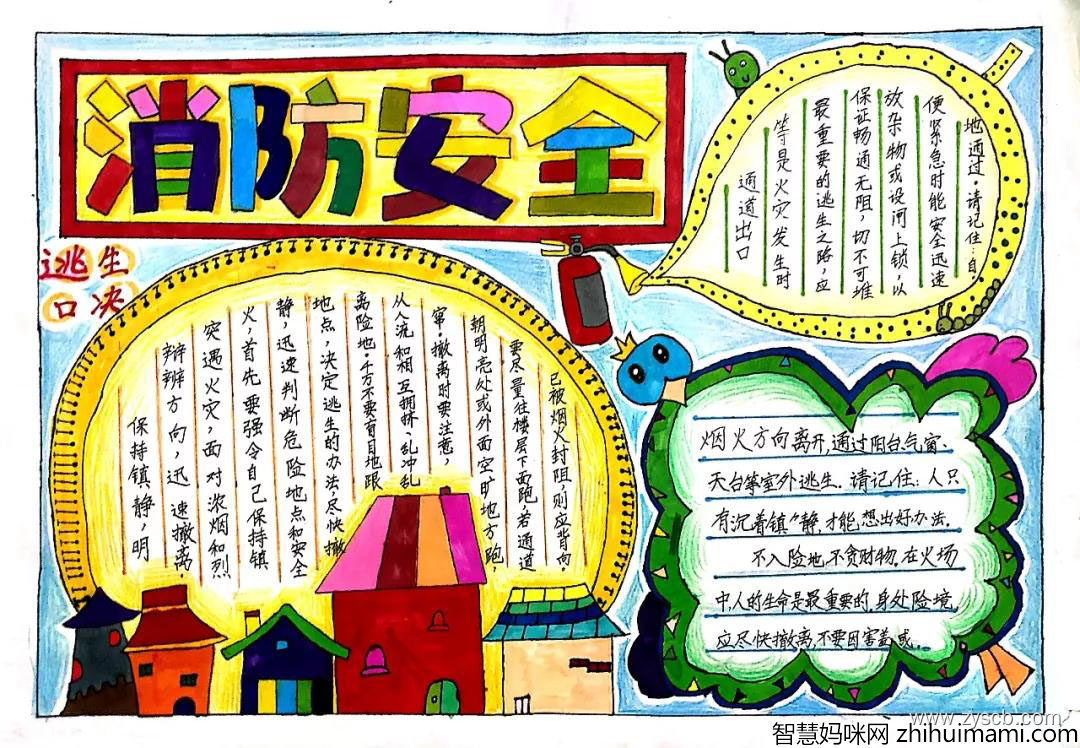 消防安全
逃生
口决
保持镇静，明
辩辨方向，迅速撤离，
突遇火灾，面对浓烟和烈
火，首先要强令自己保持镇
静，迅速判断危险地点和安全
地点，决定逃生的办法，尽快撤
离险地。千万不要盲目地跟
从人流和相互拥挤、乱冲乱
窜。撤离时要注意，
朝明亮处或外面空旷地方跑，
要尽量往楼层下面跑，若通道
已被烟火封阻，则应背向。
通道出口
等是火灾发生时
最重要的逃生之路，应
保证畅通无阻，切不可堆
放杂物或设闸上锁，以
便紧急时能安全迅速
地通过。请记住：自。
烟火方向离开，通过阳台、气窗、
天台等室外逃生。请记住：人只
有沉着镇"静，才能，想出好办法。
不入险地，不贪财物。在火场
中，人的生命是最重要的，身处险境，
应尽快撤离，不要因害羞或...
www.zyscb.com
智慧妈咪网 zhihuimami.com